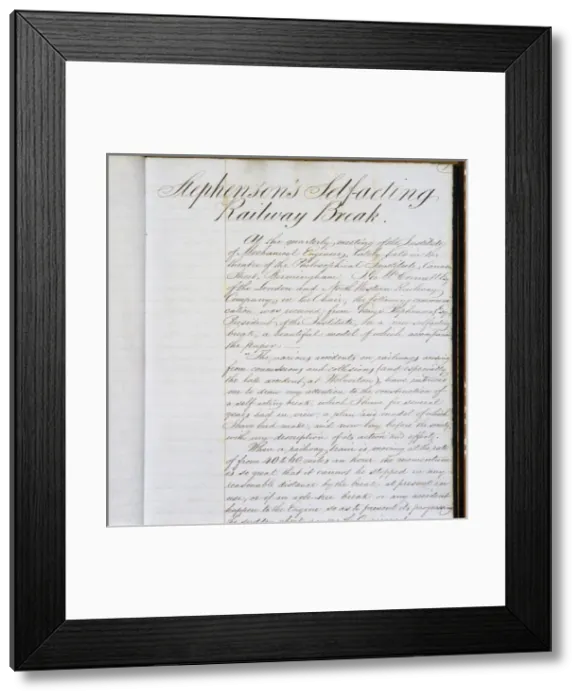 Stephenson's Selfacting
Railway Break.
At the quarterly meeting of the Institute
of Mechanical Engineers, lately held in the
theatre of the Philosophical Institute, Cannon
Street, Birmingham, J. E. McConnell Esq.
of the London and North Western Railway
Company, in the Chair, the following communi
cation was received from George Stephenson Esq
President of the Institute, on a new selfacting
break, a beautiful model of which accompanied
the paper.
"The various accidents on railways arising
from concussions and collisions (and especially
the late accident, at Wolverton), have induced
me to draw my attention to the construction of
a selfacting break, which I have for several
years had in view: a plan and model of which
I have had made, and now lay before the society
with my description of its action and effect.
When a railway train is moving at the rate
of from 40 to 60 miles an hour the momentum
is so great that it cannot be stopped in any
reasonable distance by the breaks at present in
use, or if an axle-tree break or any accident
happen to the Engine so as to prevent its progressing